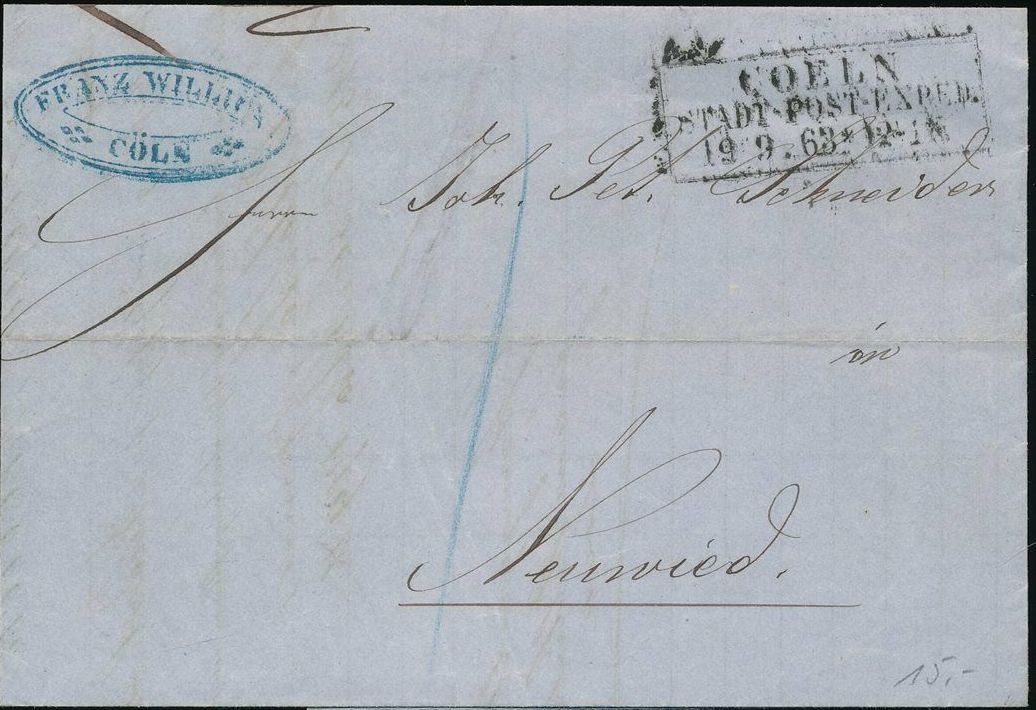 FRANZ WILLMS
CÖLN
COELN
STADT-POST-EXPED.
19 9. 63*12-1N
Herrn Joh. Pet. Schneider
in
Neuwied.
15.-